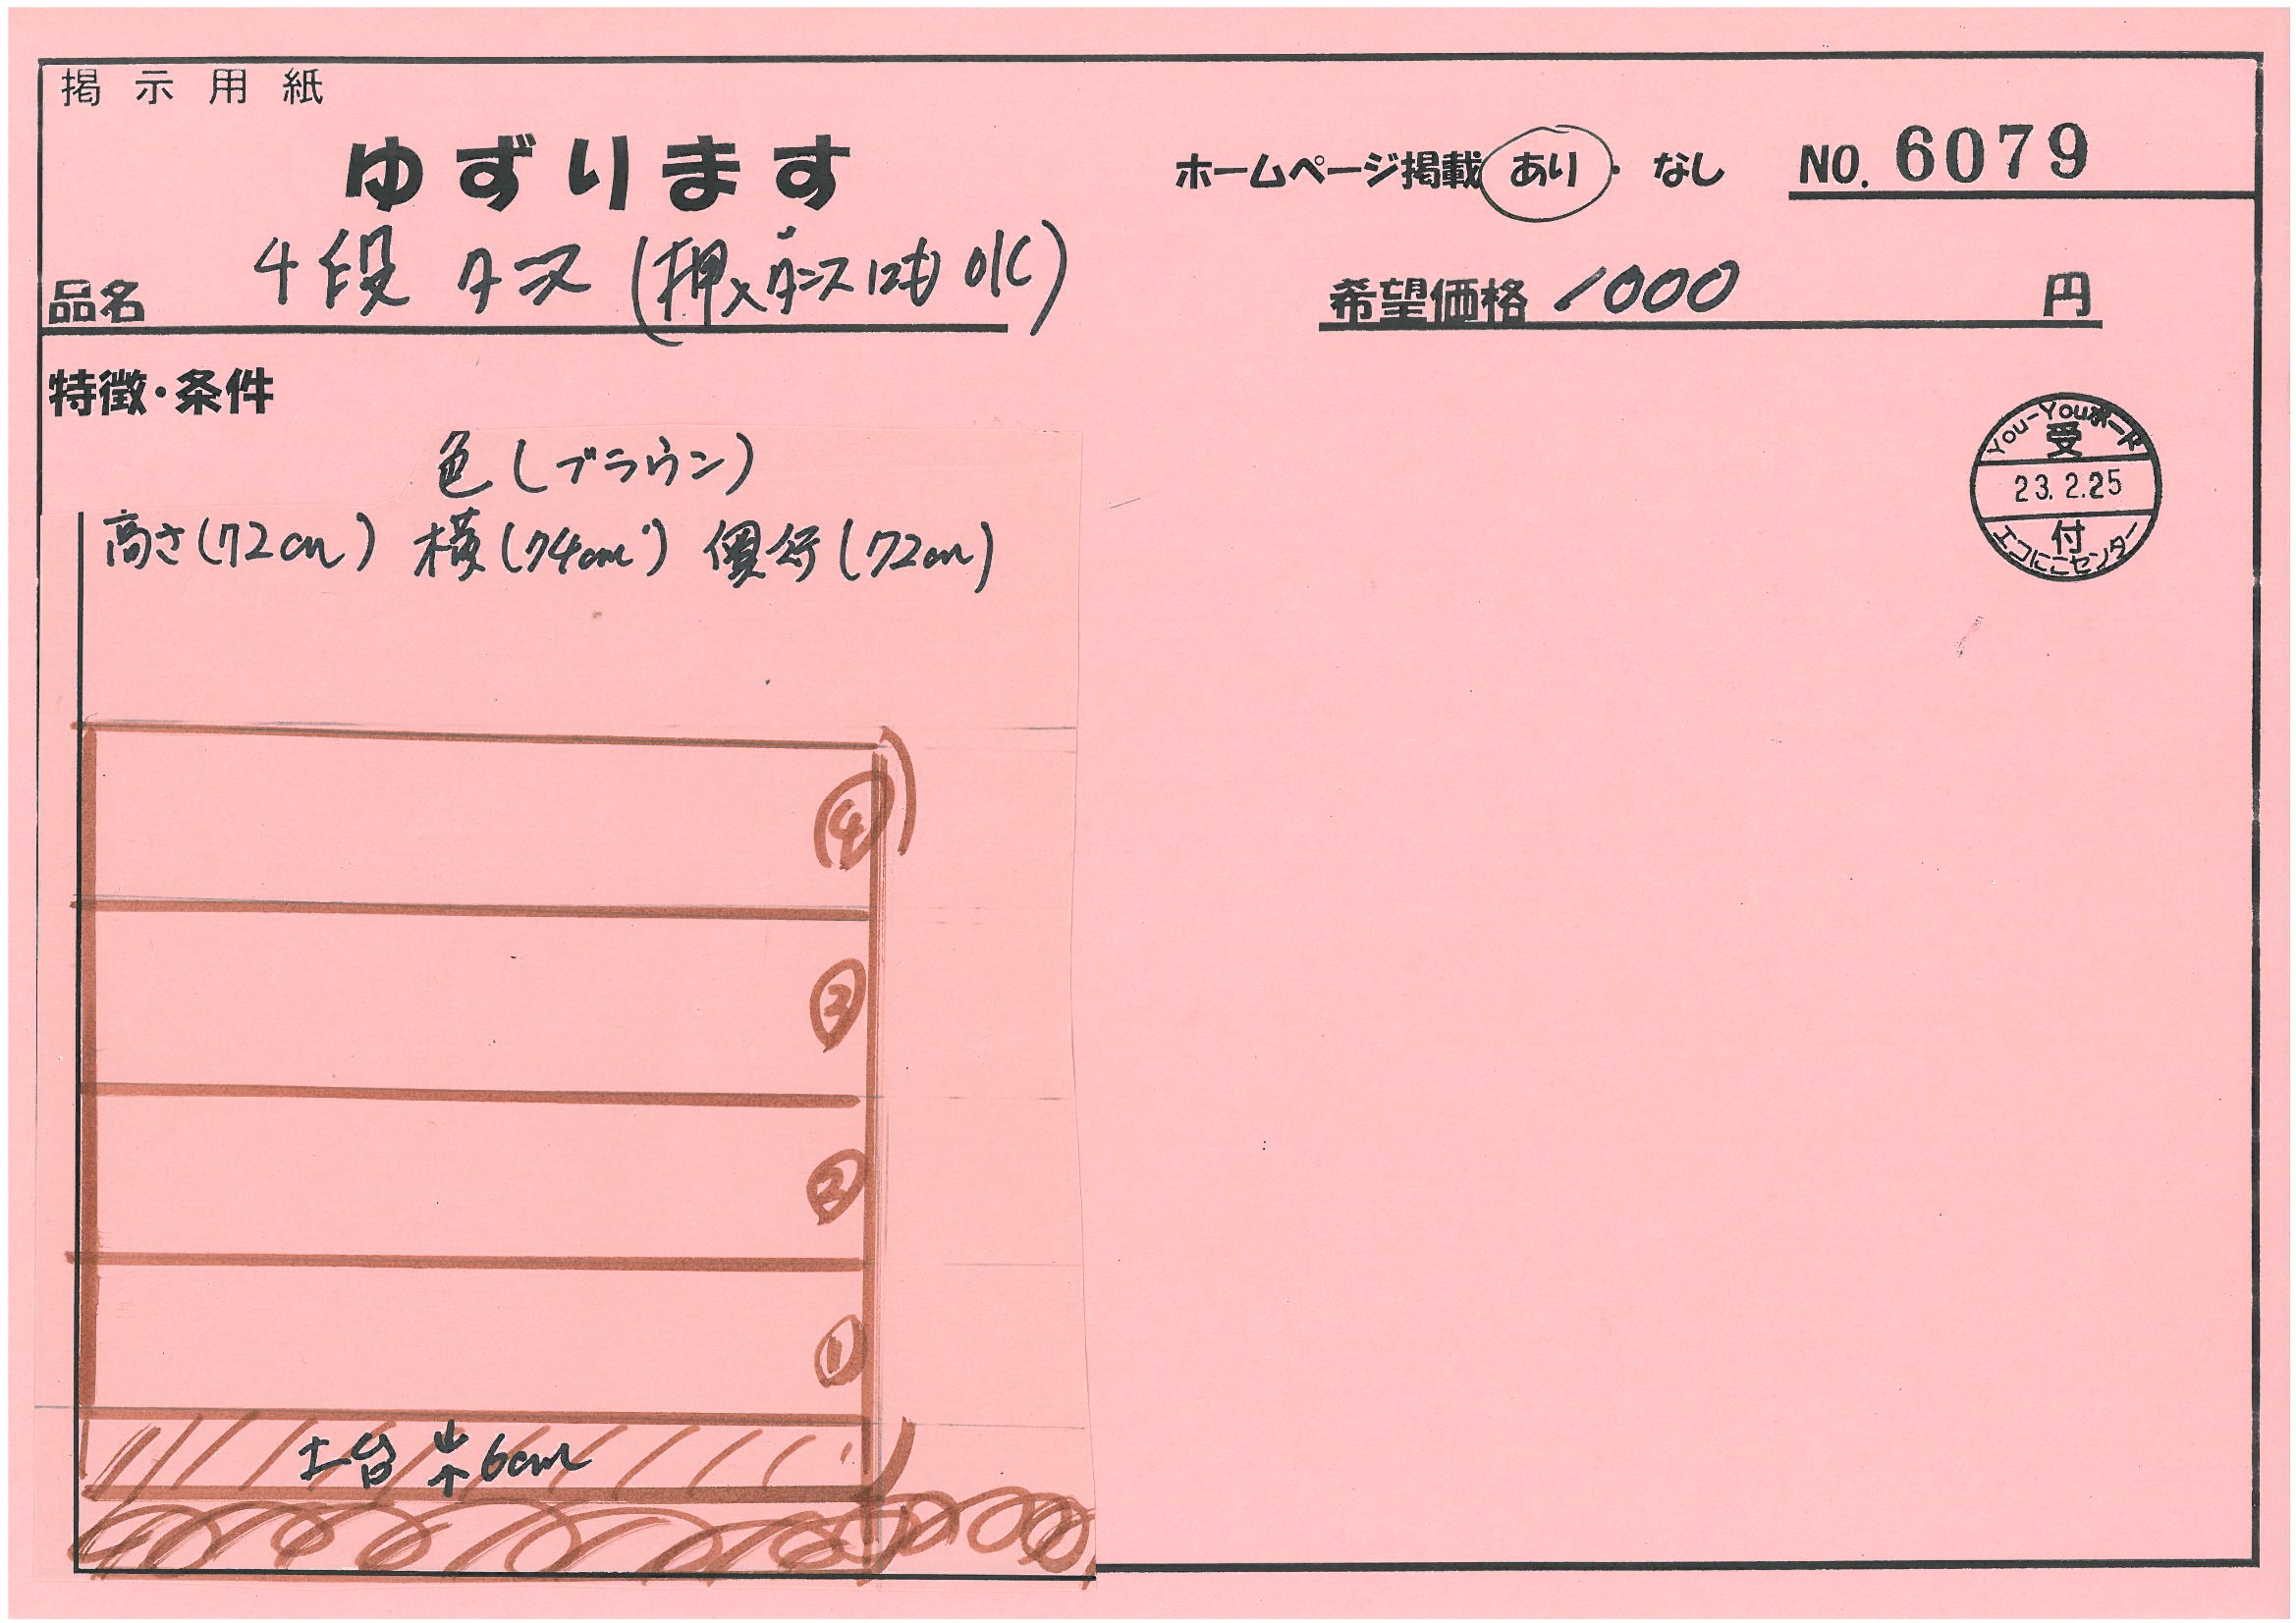 掲示用紙
ゆずります
ホームページ掲載 あり・なし NO. 6079
品名 4段 タンス (押入ダンスにも OK)
希望価格 1000 円
特徴・条件
You-Youボード
受
23.2.25
付
エコにこセンター
色 (ブラウン)
高さ(72cm) 横(74cm) 奥行(72cm)
④
③
②
①
土台 6cm